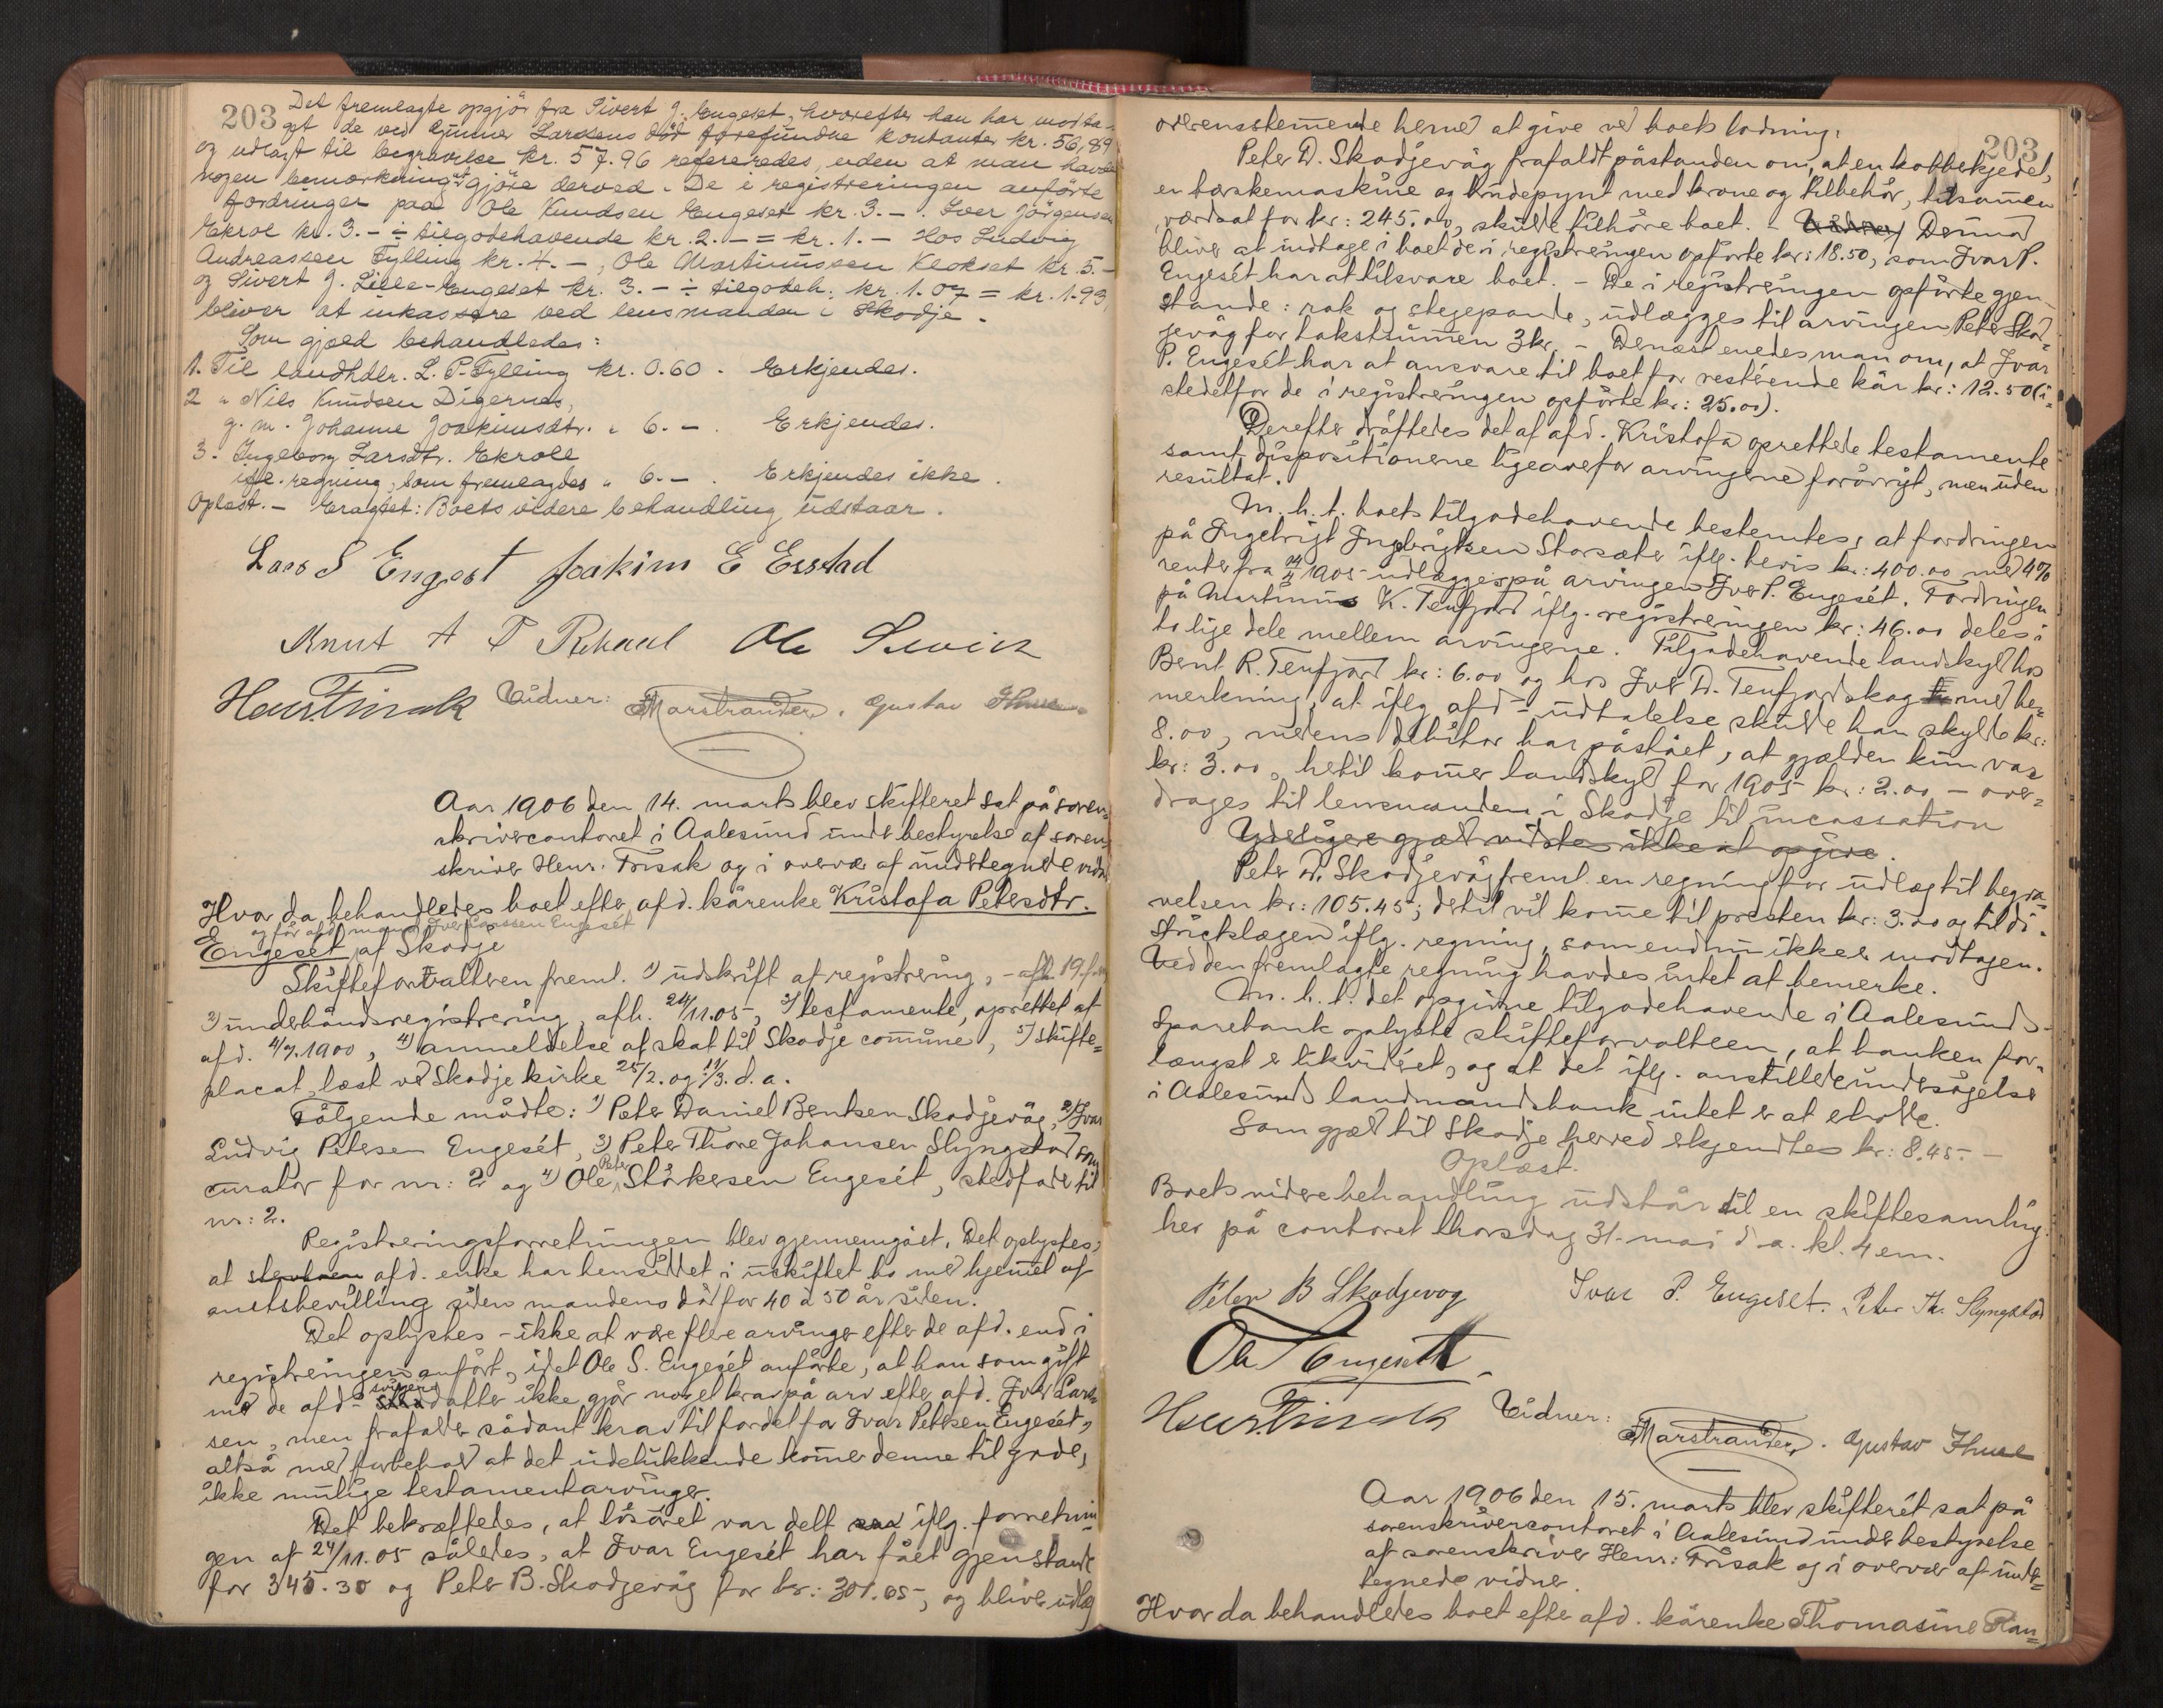 203
Det fremlagte opgjör fra Sivert J. Engeset, hvorefter han har modta-
get de ved Gunner Larssens död forefundne kontanter kr. 56,89
og udlagt til begravelse kr. 57.96 refereredes, uden at man havde
nogen bemærkning at gjöre derved. De i registreringen anförte
fordringer paa Ole Knudsen Engeset kr. 3.-. Iver Jörgensen
Ekrol kr. 3.- ÷ tilgodehavende kr. 2.- = kr. 1.- Hos Ludvig
Andreassen Fylling kr. 4.-, Ole Martinussen Klokset kr. 5.-
og Sivert J. Lille-Engeset kr. 3.- ÷ tilgodeh. kr. 1.07 = kr. 1.93,
bliver at inkassere ved lensmanden i Skodje.
Som gjæld behandledes:
1. Til landhdlr. L. P. Fylling kr. 0.60. Erkjendes.
2 " Nils Knudsen Digernes,
g. m. Johanne Joakimsdtr. " 6.-. Erkjendes.
3. Ingeborg Larsdtr. Ekroll
iflg. regning, som fremlagdes " 6.-. Erkjendes ikke.
Oplæst. - Eragtet: Boets videre behandling udstaar.
Lars S Engeset Joakim E Esstad
Knut A P Rehaul Ole
Henr. Frisak Vidner: Marstrander. Gustav Thue
Aar 1906 den 14. marts blev skifteret sat på soren-
skrivercontoret i Aalesund under bestyrelse af soren-
skriver Henr: Frisak og i overvær af undertegnede vidn
Hvor da behandledes boet efter afd. kårenke Kristofa Petersdtr.
og för afd. mand Iver Larssen Engesét
Engesét af Skodje
Skifteforvalteren freml. 1) udskrift af registrering, - afh. 19. f.
2) underhåndsregistrering, afh. 24/11.05, 3) testamente, oprettet af
afd. 4/7.1900, 4) anmeldelse af skat til Skodje comune, 5) skifte=
placat, læst ved Skodje kirke 25/2. og 11/3. d. a.
Følgende mødte: 1) Peter Daniel Bentsen Skodjevåg, 2) Ivar
Ludvig Petersen Engesét, 3) Peter Thore Johansen Slyngstad som
curator for nr: 2 og 4) Ole Peter Størkersen Engesét, stedfader til
nr: 2.
Registreringsforretningen blev gjennemgået. Det oplystes,
at afd. enke har hensiddet i uskiftet bo med hjemmel af
amtsbevilling siden mandens död for 40 à 50 år siden.
Det oplystes - ikke at være flere arvinger efter de afd. end i
registreringen anført, idet Ole S. Engesét anførte, at han som gift
med de afd.s svigerdatter ikke gjør noget krav på arv efter afd. Iver Lars-
sen, men frafalder sådant krav til fordel for Ivar Petersen Engesét,
altså med forbehold at det udelukkende kommer denne tilgode,
ikke mulige testamentarvinger.
Det bekræftedes, at løsøret var delt iflg. forretnin
gen af 24/11.05 således, at Ivar Engesét har fået gjenstande
for 345.30 og Peter B. Skodjevåg for kr: 301.05, og bliver udlæg
203
overensstemmende hermed at give ved boets lodning.
Peter D. Skodjevåg frafaldt påstanden om, at en kobbekjedel,
en børskemaskine og brudepynt med krone og tilbehör, tilsammen
værdsat for kr: 245.00, skulde tilhöre boet. - Derimod
bliver at indtage i boet de i registreringen opførte kr: 18.50, som Ivar P.
Engesét har at tilsvare boet. - De i registreringen opførte gjen-
stande: rok og stegepande, udlægges til arvingen Peter Skod-
jevåg for takstsummen 3 kr. - Dernæst enedes man om, at Ivar
P. Engesét har at ansvare til boet for restérende kår kr: 12.50 (i-
stedetfor de i registreringen opførte kr: 25.00).
Derefter dråftedes det af afd. Kristofa oprettede testamente
samt dispositionerne ligeoverfor arvingerne foråvrigt, men uden
resultat.
M. h. t. boets tilgodehavende bestemtes, at fordringen
på Ingebrigt Ingebrigtsen Storsæter iflg. bevis kr: 400.00 med 4%
renter fra 14/4 1905 udlægges på arvingen Iver P. Engesét. Fordringen
på Martinus K. Tenfjord iflg. registreringen kr: 46.00 deles i
to lige dele mellem arvingerne. Tilgodehavende landskyld hos
Bent R. Tenfjord kr: 6.00 og hos Iver D. Tenfjordskog med be-
merkning, at iflg afd.s udtalelse skulde han skylde kr:
8.00, medens debitor har påstået, at gjælden kun var
kr: 3.00, hertil kommer landskyld for 1905 kr: 2.00 - over-
drages til lensmanden i Skodje til incassation
Yderligere gjæld vidstes ikke at opgive.
Peter D. Skodjevåg freml. en regning for udlæg til begra-
velsen kr: 105.45; dertil vil komme til presten kr: 3.00 og til di-
striktslægen iflg. regning, som endnu ikke er modtagen.
Ved den fremlagte regning havdes intet at bemerke.
M. h. t. det opgivne tilgodehavende i Aalesunds
Sparebank oplyste skifteforvalteren, at banken for-
længst er likvidéret, og at det iflg. anstillede undersøgelse
i Aalesunds landmandsbank intet er at erholde.
Som gjæld til Skodje herred erkjendtes kr: 8.45.-
Oplæst.
Boets videre behandling udstår til en skiftesamling
her på contoret thorsdag 31. mai d. a. kl. 4 em.
Peter B Skodjevog Ivar P. Engeset. Peter Th. Slyngstad
Ole S Engesett
Henr. Frisak Vidner: Marstrander. Gustav Thue
Aar 1906 den 15. marts blev skifterét sat på
sorenskrivercontoret i Aalesund under bestyrelse
af sorenskriver Henr: Frisak og i overvær af under=
tegnede vidner.
Hvor da behandledes boet efter afd. kårenke Thomasine Ran=